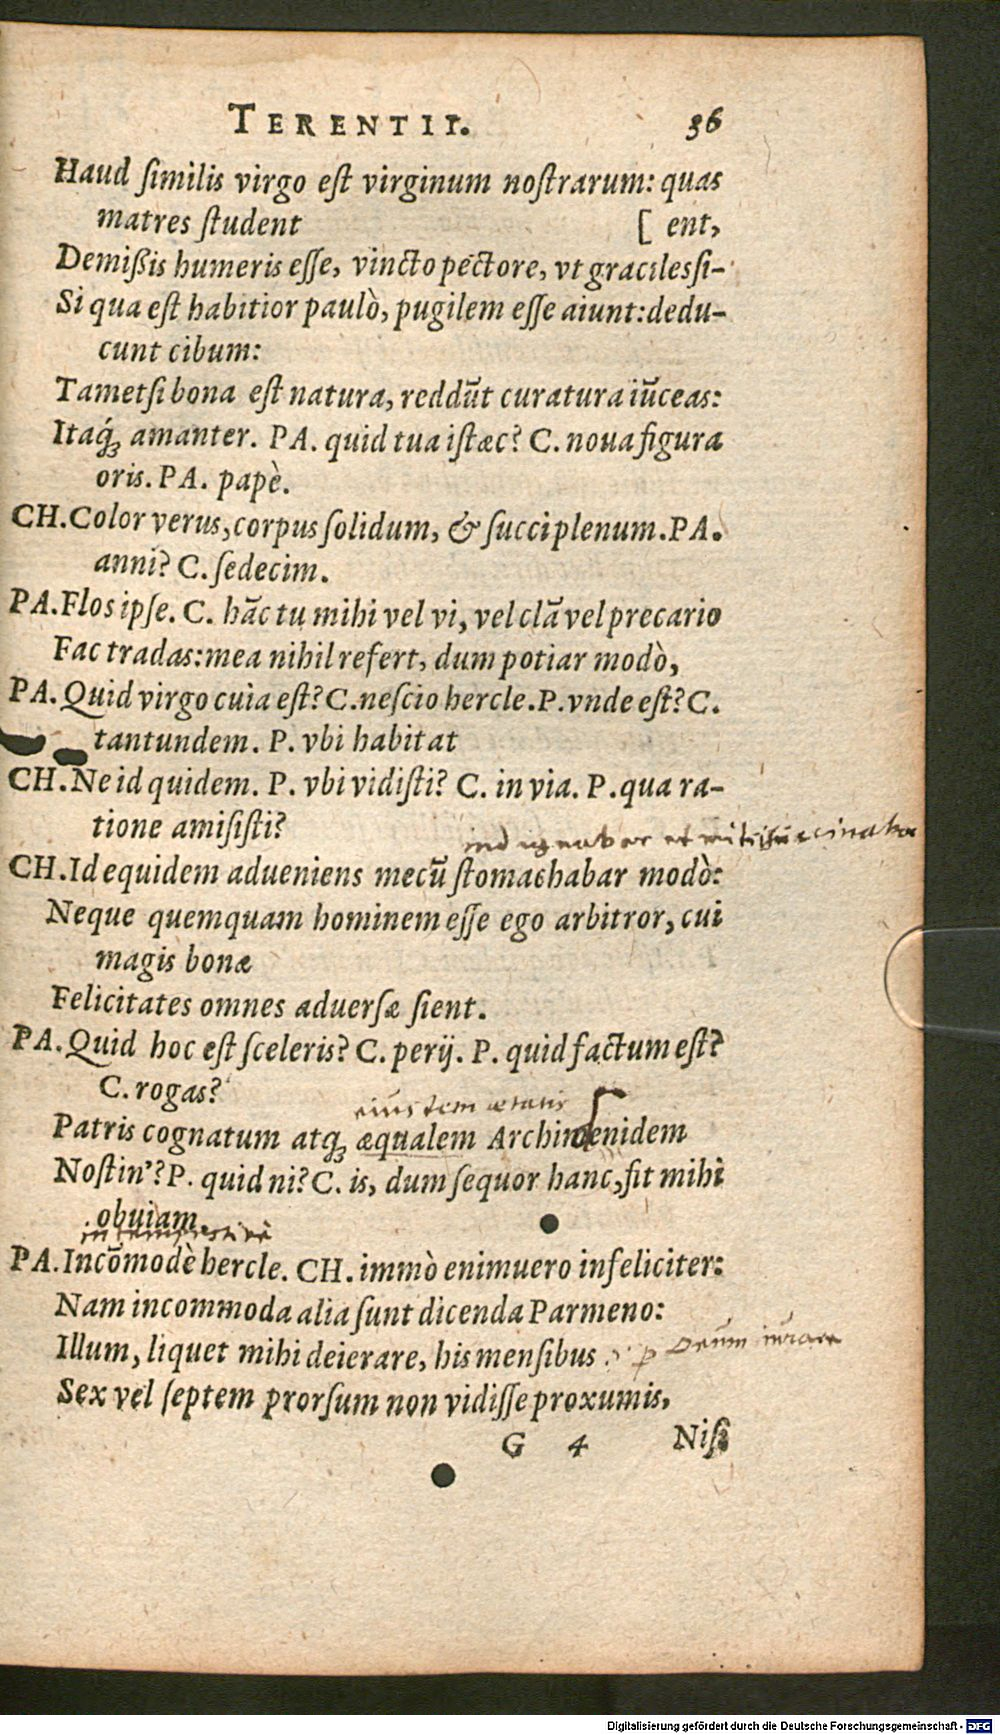 TERENTII. 36
Haud ſimilis virgo eſt virginum noſtrarum: quas
matres ſtudent [ ent,
Demiſsis humeris eſſe, vincto pectore, vt graciles ſi-
Si qua eſt habitior paulò, pugilem eſſe aiunt: dedu-
cunt cibum:
Tametſi bona eſt natura, reddūt curatura iūceas:
Itaq́ꝫ amanter. PA. quid tua iſtæc? C. noua figura
oris. PA. papè.
CH. Color verus, corpus ſolidum, & ſucci plenum. PA.
anni? C. ſedecim.
PA. Flos ipſe. C. hāc tu mihi vel vi, vel clā vel precario
Fac tradas: mea nihil refert, dum potiar modò,
PA. Quid virgo cuia eſt? C. neſcio hercle. P. vnde eſt? C.
tantundem. P. vbi habitat
CH. Ne id quidem. P. vbi vidiſti? C. in via. P. qua ra-
tione amiſiſti?
indignabar et
CH. Id equidem adueniens mecū ſtomachabar modò:
Neque quemquam hominem eſſe ego arbitror, cui
magis bonæ
Felicitates omnes aduerſæ ſient.
PA. Quid hoc eſt ſceleris? C. perij. P. quid factum eſt?
C. rogas?
eiusdem ætatis
Patris cognatum atqꝫ æqualem Archindenidem
Noſtin'? P. quid ni? C. is, dum ſequor hanc, ſit mihi
obuiam.
intempestiuè
PA. Incōmodè hercle. CH. immò enimuero infeliciter:
Nam incommoda alia ſunt dicenda Parmeno:
Illum, liquet mihi deierare, his menſibus p Deum iurare
Sex vel ſeptem prorſum non vidiſſe proxumis,
G 4 Niſi
Digitalisierung gefördert durch die Deutsche Forschungsgemeinschaft - DFG